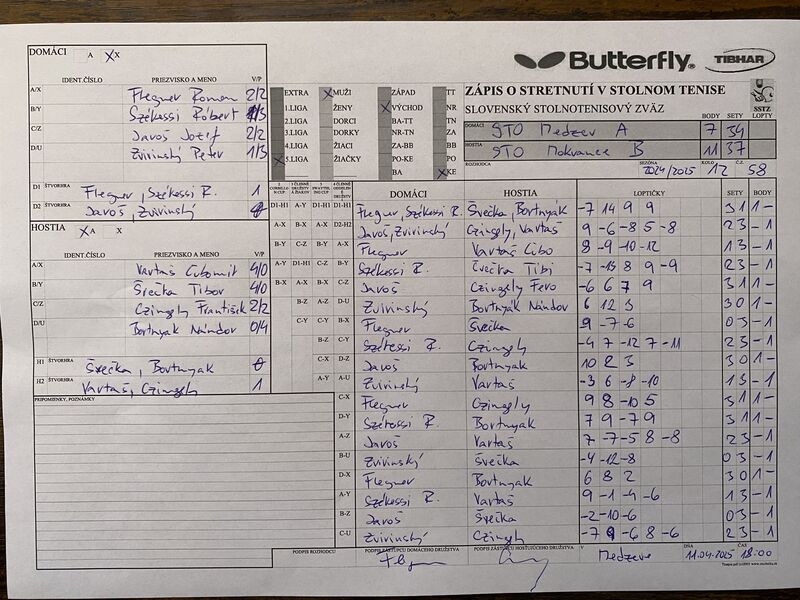 DOMÁCI A X X
IDENT.ČÍSLO PRIEZVISKO A MENO V/P
A/X Flegner Roman 2/2
B/Y Székessi Róbert /3
C/Z Javoš Jozef 2/2
D/U Zvirinský Peter 1/3
D1 ŠTVORHRA Flegner, Székessi R. 1
D2 ŠTVORHRA Javoš, Zvirinský 0
HOSTIA X A X
IDENT.ČÍSLO PRIEZVISKO A MENO V/P
A/X Vartaš Ľubomír 4/0
B/Y Švečka Tibor 4/0
C/Z Czingely František 2/2
D/U Bortnyak Nándov 0/4
H1 ŠTVORHRA Švečka, Bortnyak 0
H2 ŠTVORHRA Vartaš, Czingely 1
PRIPOMIENKY, POZNÁMKY
Butterfly TIBHAR
EXTRA X MUŽI ZÁPAD TT
1.LIGA ŽENY X VÝCHOD NR
2.LIGA DORCI BA-TT TN
3.LIGA DORKY NR-TN ZA
4.LIGA ŽIACI ZA-BB BB
X 5.LIGA ŽIAČKY PO-KE PO
BA X KE
ZÁPIS O STRETNUTÍ V STOLNOM TENISE
SLOVENSKÝ STOLNOTENISOVÝ ZVÄZ
SSTZ
BODY SETY LOPTY
DOMÁCI STO Medzev A 7 34
HOSTIA STO Mokrance B 11 37
ROZHODCA SEZÓNA 2024/2025 KOLO 12 Č.Z. 58
DOMÁCI HOSTIA LOPTIČKY SETY BODY
D1-H1 A-Y D1-H1 D1-H1 Flegner, Székessi R. Švečka, Bortnyák -7 14 9 9 3 1 1 -
A-X B-X A-X D2-H2 Javoš, Zvirinský Czingely, Vartaš 9 -6 -8 5 -8 2 3 - 1
B-Y C-Z B-Y A-X Flegner Vartaš Ľubo 8 -9 -10 -12 1 3 - 1
A-Y D1-H1 C-Z B-Y Székessi R. Švečka Tibi -7 -13 8 9 -9 2 3 - 1
B-X A-X A-Y C-Z Javoš Czingely Fero -6 6 7 9 3 1 1 -
B-Z A-Z D-U Zvirinský Bortnyak Nándov 6 12 3 3 0 1 -
C-Y C-Y B-X Flegner Švečka 9 -7 -6 0 3 - 1
B-Z C-Y Székessi R. Czingely -4 7 -12 7 -11 2 3 - 1
C-X D-Z Javoš Bortnyak 10 2 3 3 0 - 1
A-Y A-U Zvirinský Vartaš -3 6 -8 -10 1 3 - 1
C-X Flegner Czingely 9 8 -10 5 3 1 1 -
D-Y Székessi R. Bortnyak 7 9 -7 9 3 1 1 -
A-Z Javoš Vartaš 7 -7 -5 8 -8 2 3 - 1
B-U Zvirinský Švečka -4 -12 -8 0 3 - 1
D-X Flegner Bortnyak 6 8 2 3 0 1 -
A-Y Székessi R. Vartaš 9 -1 -4 -6 1 3 - 1
B-Z Javoš Švečka -2 -10 -6 0 3 - 1
C-U Zvirinský Czingely -7 9 -6 8 -6 2 3 - 1
PODPIS ROZHODCU PODPIS ZÁSTUPCU DOMÁCEHO DRUŽSTVA PODPIS ZÁSTUPCU HOSŤUJÚCEHO DRUŽSTVA V Medzeve DŇA 11.04.2025 ČAS 18:00